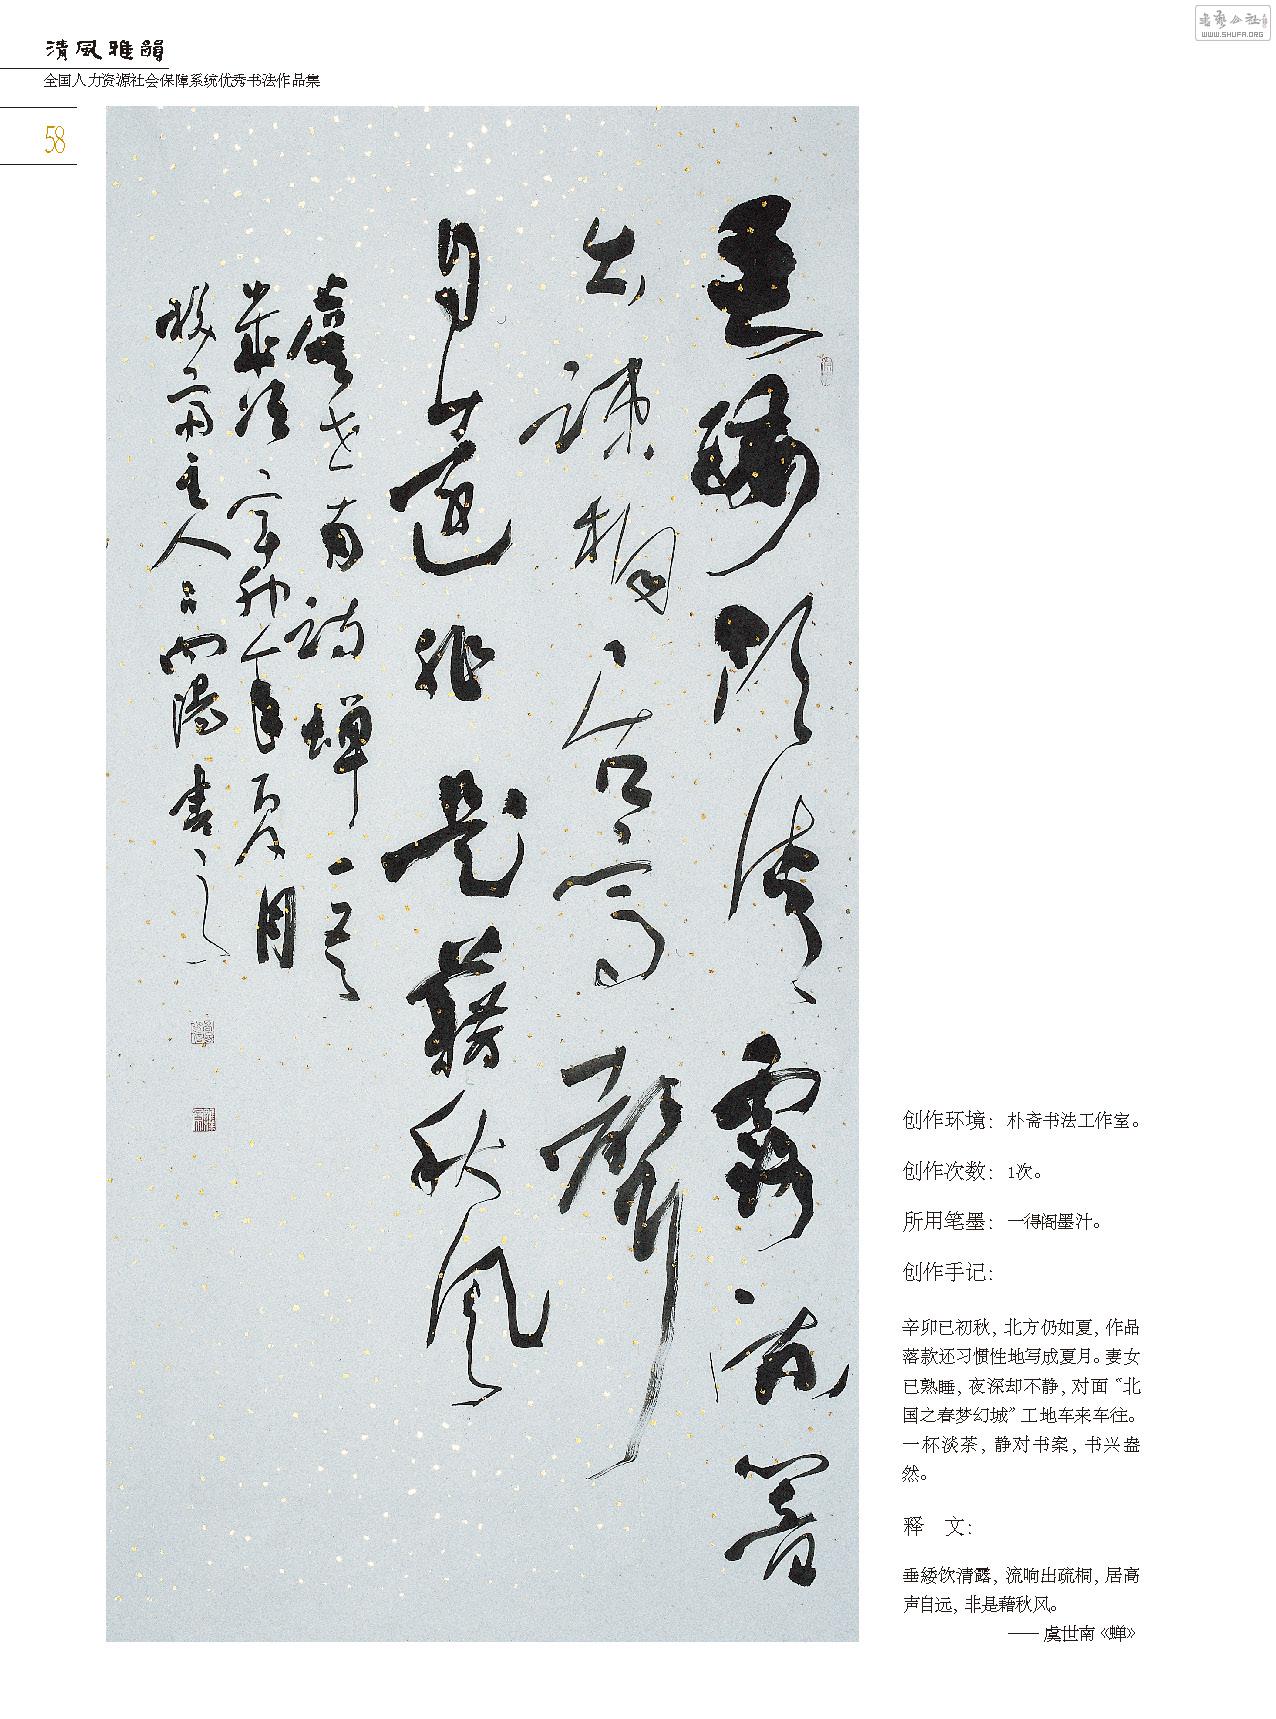 清風雅韻
全国人力资源社会保障系统优秀书法作品集
58
书艺公社
WWW.SHUFA.ORG
垂緌饮清露流响
出疏桐居高声
自远非是藉秋风
虞世南诗蝉一首
岁次辛卯年夏月
主人
书之
创作环境：朴斋书法工作室。
创作次数：1次。
所用笔墨：一得阁墨汁。
创作手记：
辛卯已初秋，北方仍如夏，作品
落款还习惯性地写成夏月。妻女
已熟睡，夜深却不静，对面“北
国之春梦幻城”工地车来车往。
一杯淡茶，静对书案，书兴盎
然。
释 文：
垂緌饮清露，流响出疏桐，居高
声自远，非是藉秋风。
—— 虞世南《蝉》